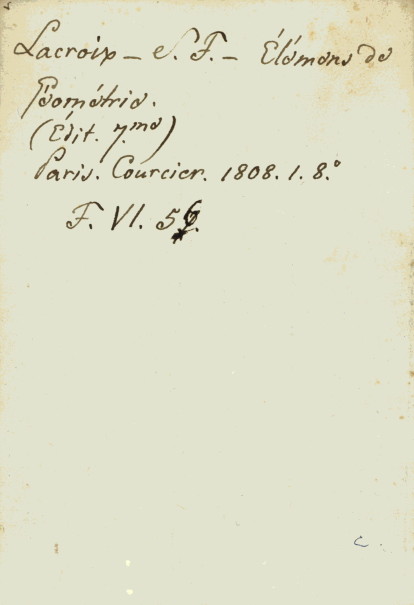 Lacroix - S. F. - Élémens de
Géométrie.
(Édit. 7.me)
Paris. Courcier. 1808. 1. 8.°
F. VI.
c.